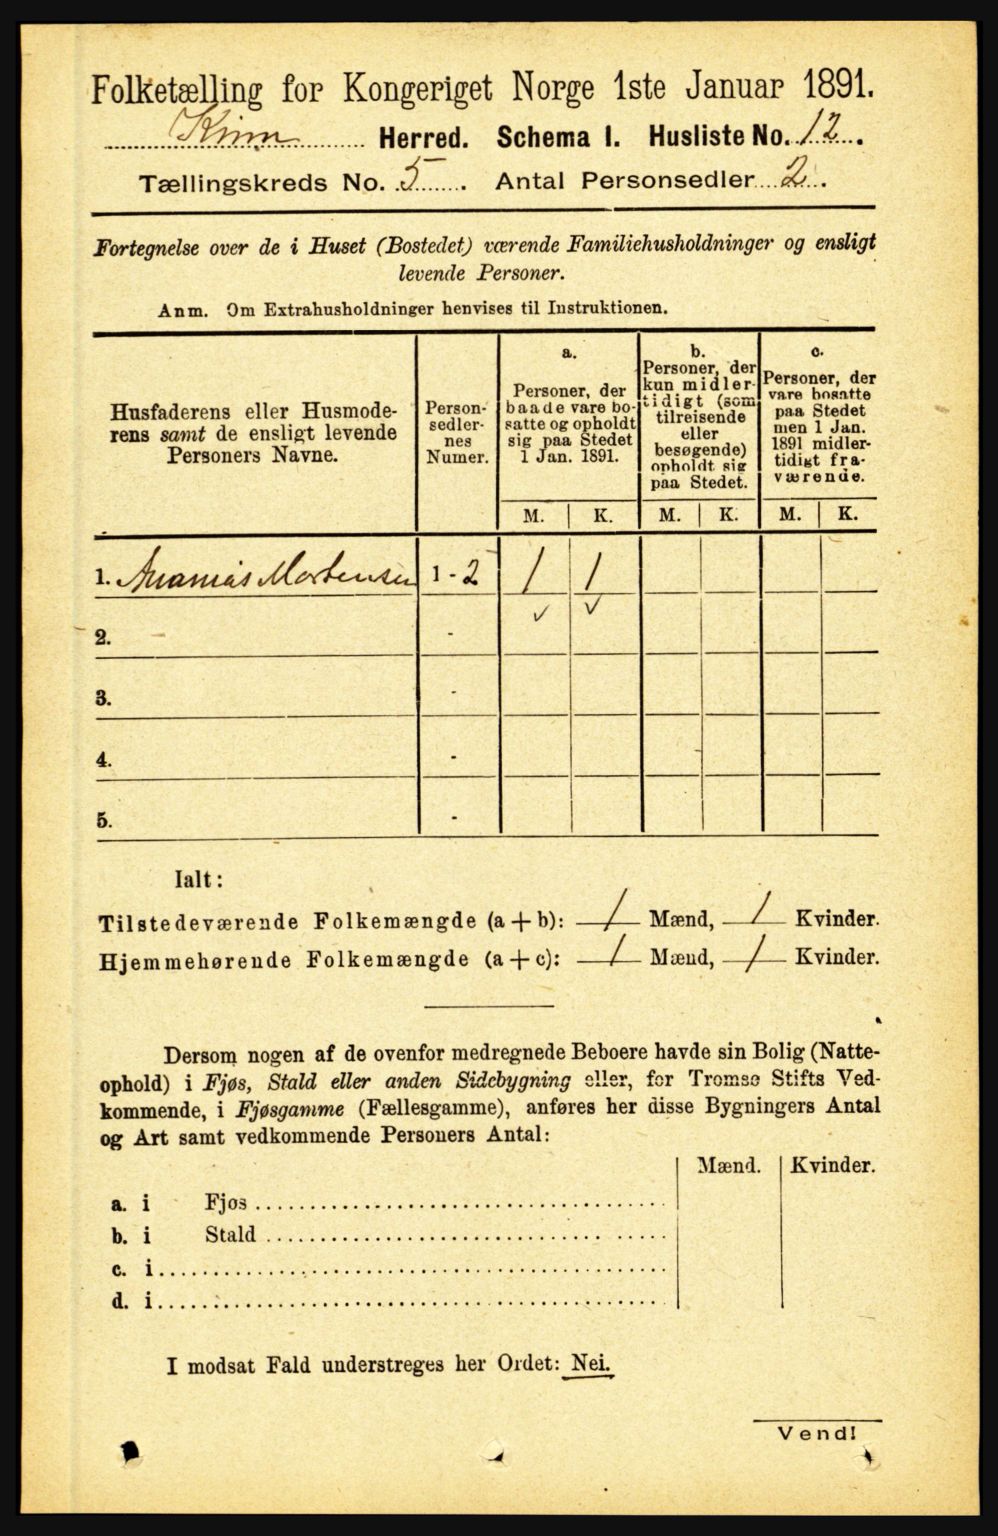 Folketælling for Kongeriget Norge 1ste Januar 1891.
Kinn Herred. Schema I. Husliste No. 12.
Tællingskreds No. 5. Antal Personsedler 2.
Fortegnelse over de i Huset (Bostedet) værende Familiehusholdninger og ensligt
levende Personer.
Anm. Om Extrahusholdninger henvises til Instruktionen.
Husfaderens eller Husmode-
rens samt de ensligt levende
Personers Navne.
Person-
sedler-
nes
Numer.
a.
Personer, der
baade vare bo-
satte og opholdt
sig paa Stedet
1 Jan. 1891.
b.
Personer, der
kun midler-
tidigt (som
tilreisende
eller
besøgende)
opholdt sig
paa Stedet.
c.
Personer, der
vare bosatte
paa Stedet
men 1 Jan.
1891 midler-
tidigt fra-
værende.
M. K. M. K. M. K.
1. Ananias Mortensen 1 - 2 1 1
2. -
3. -
4. -
5. -
Ialt:
Tilstedeværende Folkemængde (a + b): 1 Mænd, 1 Kvinder.
Hjemmehørende Folkemængde (a + c): 1 Mænd, 1 Kvinder.
Dersom nogen af de ovenfor medregnede Beboere havde sin Bolig (Natte-
ophold) i Fjøs, Stald eller anden Sidebygning eller, for Tromsø Stifts Ved-
kommende, i Fjøsgamme (Fællesgamme), anføres her disse Bygningers Antal
og Art samt vedkommende Personers Antal:
Mænd. Kvinder.
a. i Fjøs
b. i Stald
c. i
d. i
I modsat Fald understreges her Ordet: Nei.
Vend!